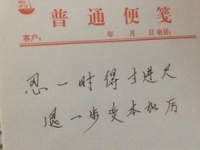 普通便笺
客户: 年 月 日 电话:
忍一时得寸进尺
退一步变本加厉